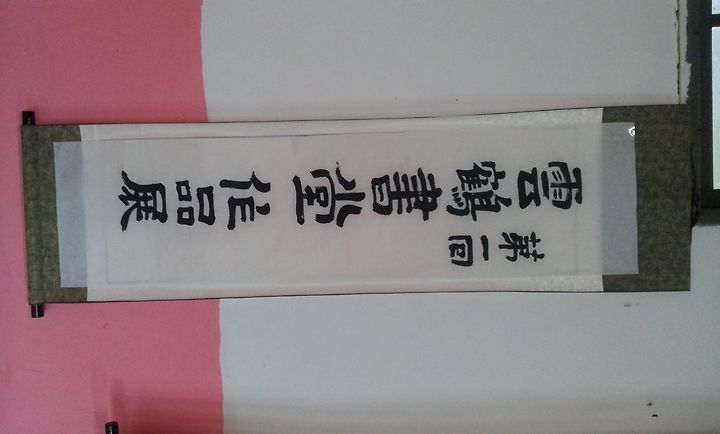 第一回
雲鶴書堂作品展